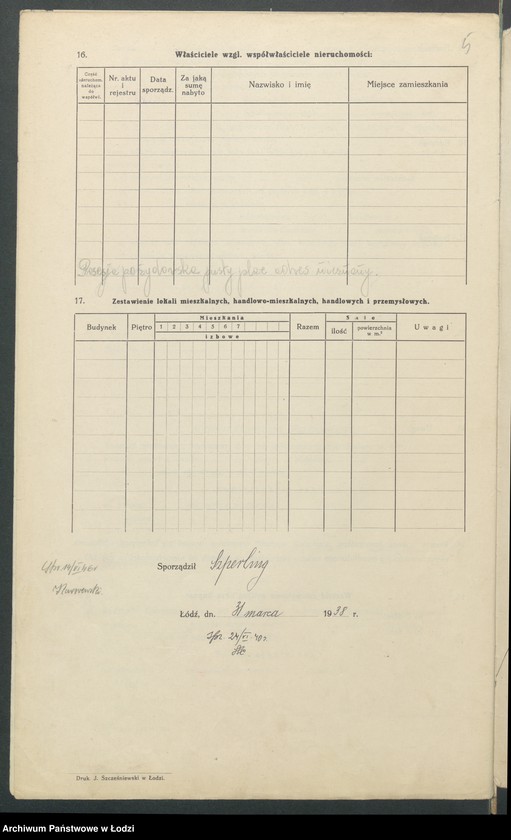 5
16. Właściciele wzgl. współwłaściciele nieruchomości:
Część nieruchom. należąca do współwł.
Nr. aktu i rejestru
Data sporządz.
Za jaką sumę nabyto
Nazwisko i imię
Miejsce zamieszkania
plac adres nieznany.
17. Zestawienie lokali mieszkalnych, handlowo-mieszkalnych, handlowych i przemysłowych.
Budynek
Piętro
Mieszkania
1 2 3 4 5 6 7
izbowe
Razem
Sale
ilość
powierzchnia w m.²
Uwagi
Sporządził Szperling
Łódź, dn. 31 marca 1938 r.
Druk. J. Szcześniewski w Łodzi.
Archiwum Państwowe w Łodzi